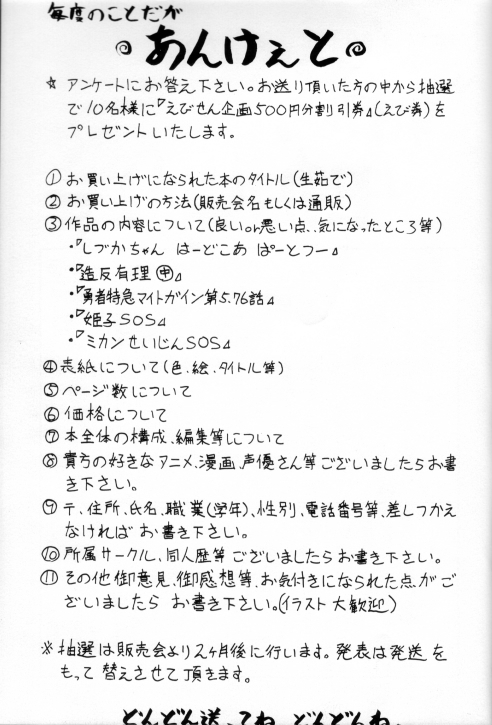 毎度のことだが
あんけぇと
☆ アンケートにお答え下さい。お送り頂いた方の中から抽選
で10名様に『えびせん企画500円分割引券』(えび券)を
プレゼントいたします。
① お買い上げになられた本のタイトル(生茹で)
② お買い上げの方法(販売会名もしくは通販)
③ 作品の内容について(良いor悪い点、気になったところ等)
・『しづかちゃん はーどこあ ぱーとつー』
・『造反有理㊥』
・『勇者特急マイトガイン第5.76話』
・『姫子SOS』
・『ミカンせいじんSOS』
④ 表紙について(色、絵、タイトル等)
⑤ ページ数について
⑥ 価格について
⑦ 本全体の構成、編集等について
⑧ 貴方の好きなアニメ、漫画、声優さん等ございましたらお書
き下さい。
⑨ 〒、住所、氏名、職業(学年)、性別、電話番号等、差しつかえ
なければ お書き下さい。
⑩ 所属サークル、同人歴等ございましたらお書き下さい。
⑪ その他御意見、御感想等、お気付きになられた点がご
ざいましたら お書き下さい。(イラスト大歓迎)
※ 抽選は販売会より2ヶ月後に行います。発表は発送を
もって替えさせて頂きます。
どんどん送ってね どんどんね